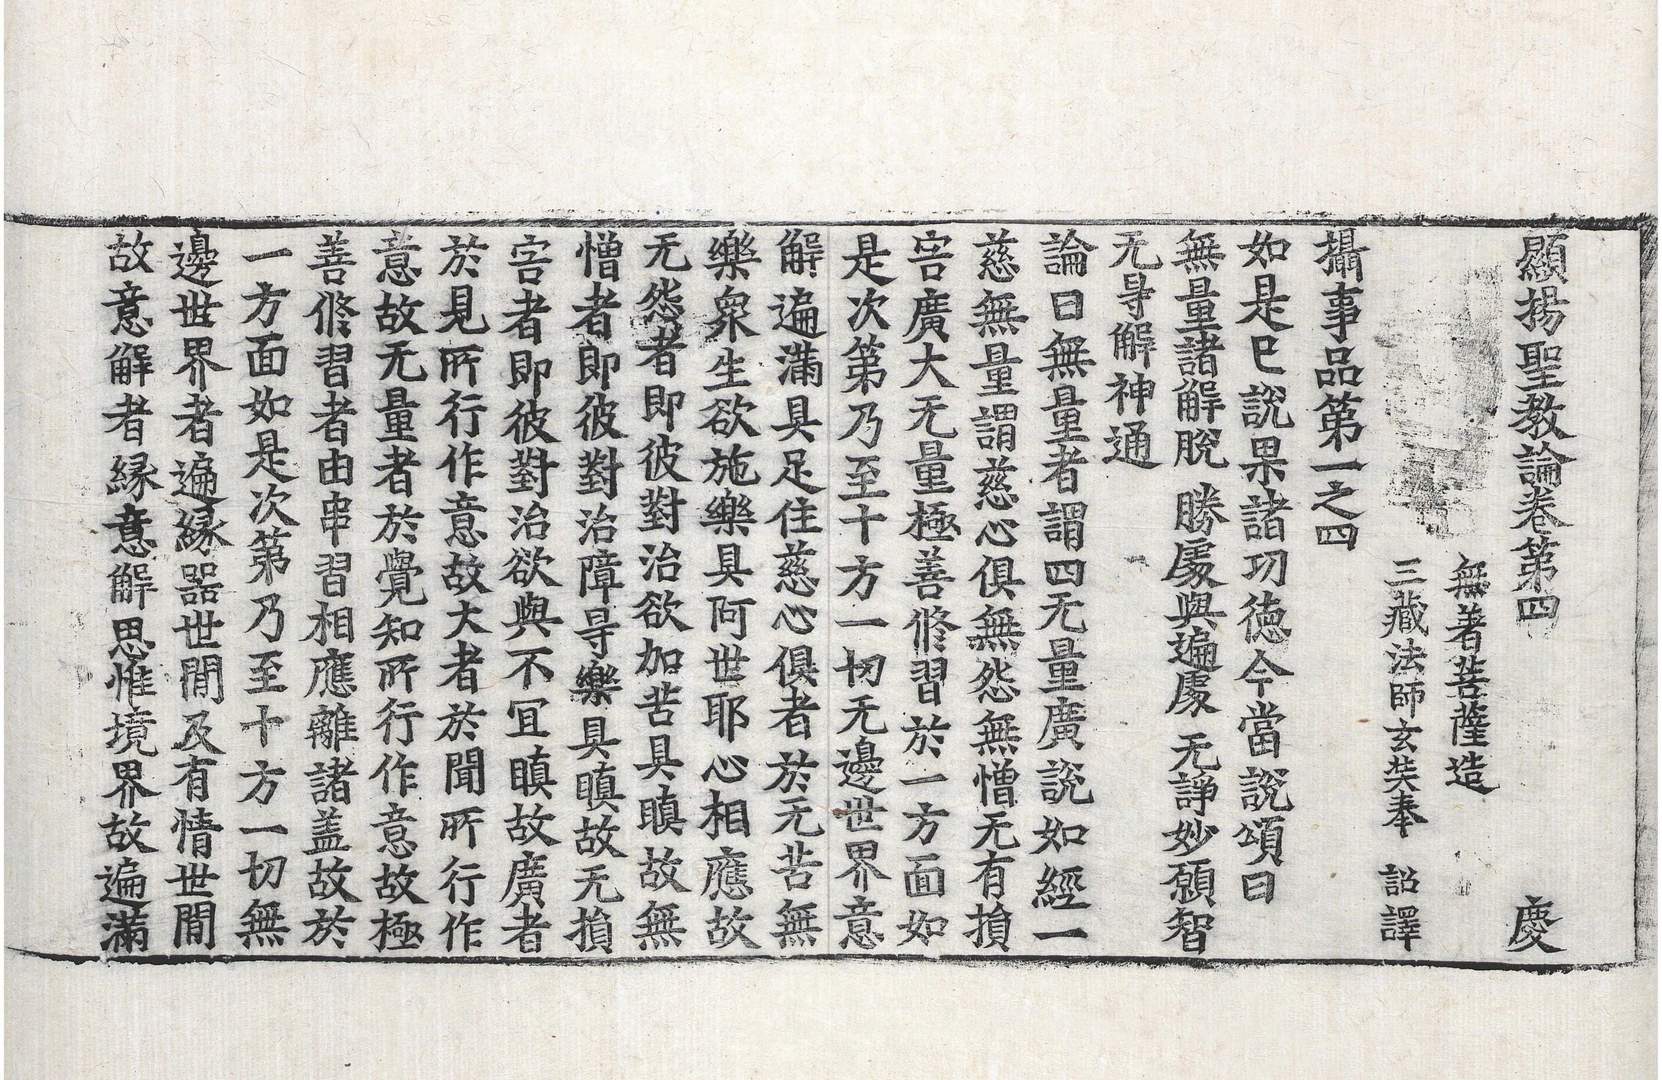 顯揚聖教論卷第四　慶
無著菩薩造
三藏法師玄奘奉　詔譯
攝事品第一之四
如是已說果諸功德今當說頌曰
無量諸解脫　勝處與遍處　无諍妙願智
无㝵解神通
論曰無量者謂四无量廣說如經一
慈無量謂慈心俱無怨無憎无有損
害廣大无量極善修習於一方面如
是次第乃至十方一切无邊世界意
解遍滿具足住慈心俱者於无苦無
樂衆生欲施樂具阿世耶心相應故
无怨者即彼對治欲加苦具瞋故無
憎者即彼對治障㝵樂具瞋故无損
害者即彼對治欲與不冝瞋故廣者
於見所行作意故大者於聞所行作
意故无量者於覺知所行作意故極
善修習者由串習相應離諸盖故於
一方面如是次第乃至十方一切無
邊世界者遍緣器世間及有情世間
故意解者緣意解思惟境界故遍滿